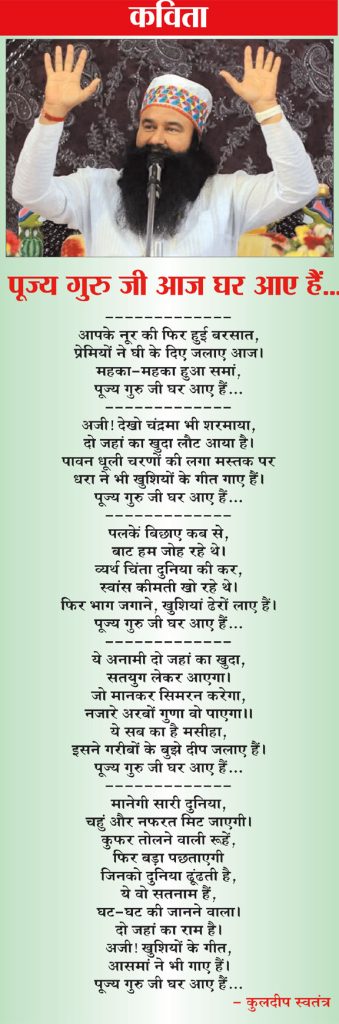 कविता
पूज्य गुरु जी आज घर आए हैं...
-------------
आपके नूर की फिर हुई बरसात,
प्रेमियों ने घी के दिए जलाए आज।
महका-महका हुआ समां,
पूज्य गुरु जी घर आए हैं...
-------------
अजी! देखो चंद्रमा भी शरमाया,
दो जहां का खुदा लौट आया है।
पावन धूली चरणों की लगा मस्तक पर
धरा ने भी खुशियों के गीत गाए हैं।
पूज्य गुरु जी घर आए हैं...
-------------
पलकें बिछाए कब से,
बाट हम जोह रहे थे।
व्यर्थ चिंता दुनिया की कर,
स्वांस कीमती खो रहे थे।
फिर भाग जगाने, खुशियां ढेरों लाए हैं।
पूज्य गुरु जी घर आए हैं...
-------------
ये अनामी दो जहां का खुदा,
सतयुग लेकर आएगा।
जो मानकर सिमरन करेगा,
नजारे अरबों गुणा वो पाएगा।।
ये सब का है मसीहा,
इसने गरीबों के बुझे दीप जलाए हैं।
पूज्य गुरु जी घर आए हैं...
-------------
मानेगी सारी दुनिया,
चहुं और नफरत मिट जाएगी।
कुफर तोलने वाली रूहें,
फिर बड़ा पछताएगी
जिनको दुनिया ढूंढती है,
ये वो सतनाम हैं,
घट-घट की जानने वाला।
दो जहां का राम है।
अजी! खुशियों के गीत,
आसमां ने भी गाए हैं।
पूज्य गुरु जी घर आए हैं...
- कुलदीप स्वतंत्र